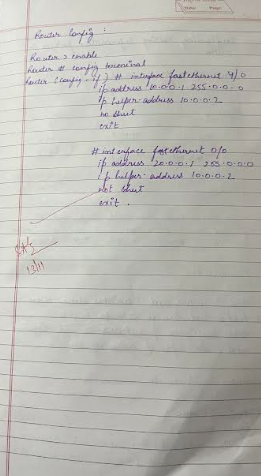 Router Config :
Router > enable
Router # config terminal
Router (config-if) # interface fastethernet 4/0
ip address 10.0.0.1 255.0.0.0
ip helper-address 10.0.0.2
no shut
exit
# interface fastethernet 0/0
ip address 20.0.0.1 255.0.0.0
ip helper-address 10.0.0.2
not shut
exit .
13/11